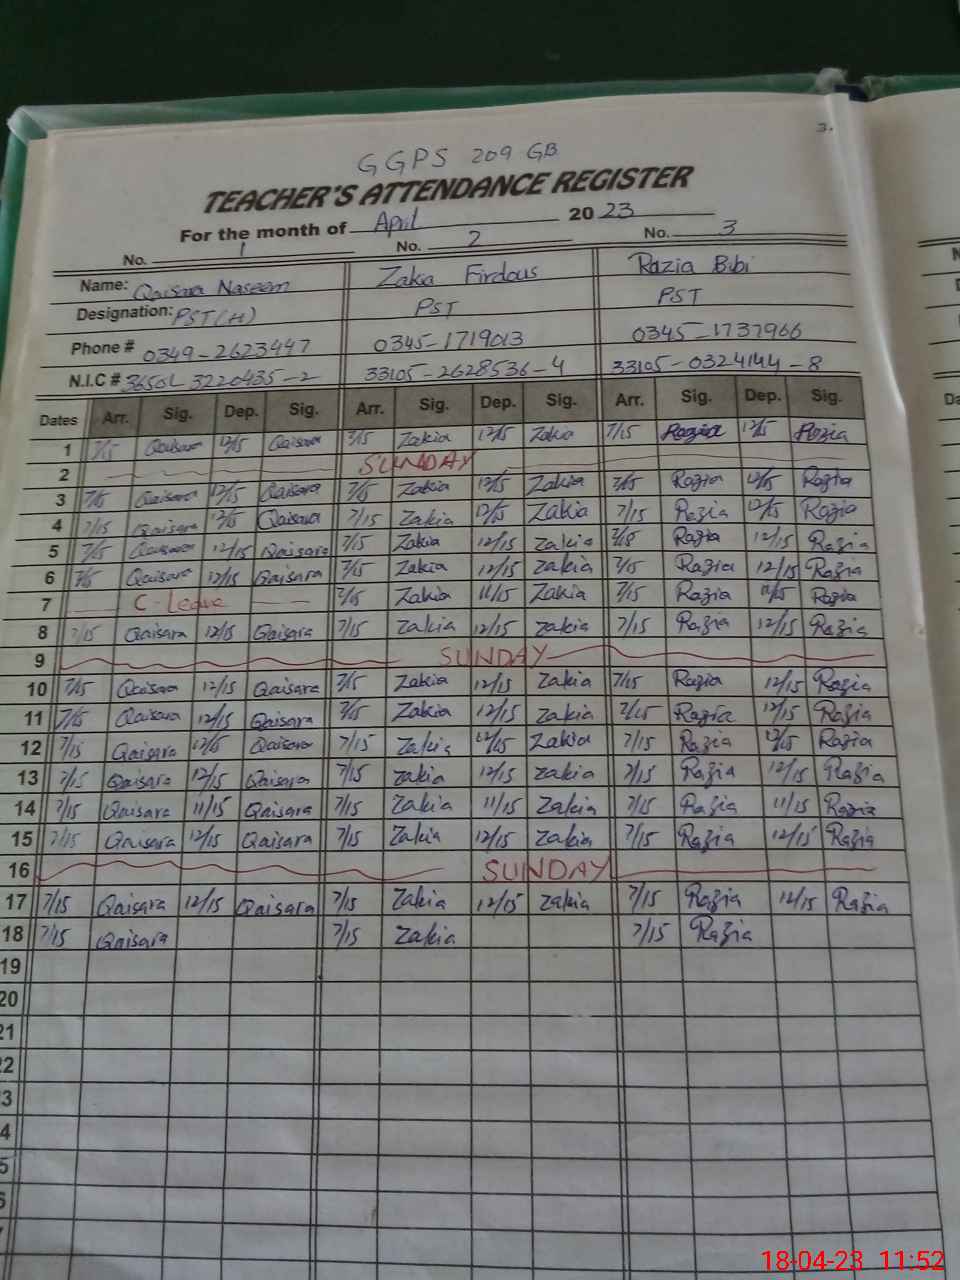 3.
GGPS 209 GB
TEACHER'S ATTENDANCE REGISTER
For the month of April 2023
No. 1 No. 2 No. 3
Name: Qaisara Naseem Zakia Firdous Razia Bibi
Designation: PST(H) PST PST
Phone # 0349-2623447 0345-1719013 0345-1737966
N.I.C # 33105-2628536-4 33105-0324144-8
Dates Arr. Sig. Dep. Sig. Arr. Sig. Dep. Sig. Arr. Sig. Dep. Sig.
1 7/15 Qaisara 12/15 Qaisara 7/15 Zakia 12/15 Zakia 7/15 Razia 12/15 Razia
2 SUNDAY
3 7/15 Qaisara 12/15 Qaisara 7/15 Zakia 12/15 Zakia 7/15 Razia 12/15 Razia
4 7/15 Qaisara 12/15 Qaisara 7/15 Zakia 12/15 Zakia 7/15 Razia 12/15 Razia
5 7/15 Qaisara 12/15 Qaisara 7/15 Zakia 12/15 Zakia 7/15 Razia 12/15 Razia
6 7/15 Qaisara 12/15 Qaisara 7/15 Zakia 12/15 Zakia 7/15 Razia 12/15 Razia
7 C-Leave 7/15 Zakia 11/15 Zakia 7/15 Razia 11/15 Razia
8 7/15 Qaisara 12/15 Qaisara 7/15 Zakia 12/15 Zakia 7/15 Razia 12/15 Razia
9 SUNDAY
10 7/15 Qaisara 12/15 Qaisara 7/15 Zakia 12/15 Zakia 7/15 Razia 12/15 Razia
11 7/15 Qaisara 12/15 Qaisara 7/15 Zakia 12/15 Zakia 7/15 Razia 12/15 Razia
12 7/15 Qaisara 12/15 Qaisara 7/15 Zakia 12/15 Zakia 7/15 Razia 12/15 Razia
13 7/15 Qaisara 12/15 Qaisara 7/15 Zakia 12/15 Zakia 7/15 Razia 12/15 Razia
14 7/15 Qaisara 11/15 Qaisara 7/15 Zakia 11/15 Zakia 7/15 Razia 11/15 Razia
15 7/15 Qaisara 12/15 Qaisara 7/15 Zakia 12/15 Zakia 7/15 Razia 12/15 Razia
16 SUNDAY
17 7/15 Qaisara 12/15 Qaisara 7/15 Zakia 12/15 Zakia 7/15 Razia 12/15 Razia
18 7/15 Qaisara 7/15 Zakia 7/15 Razia
19
20
21
2
3
4
5
18-04-23 11:52